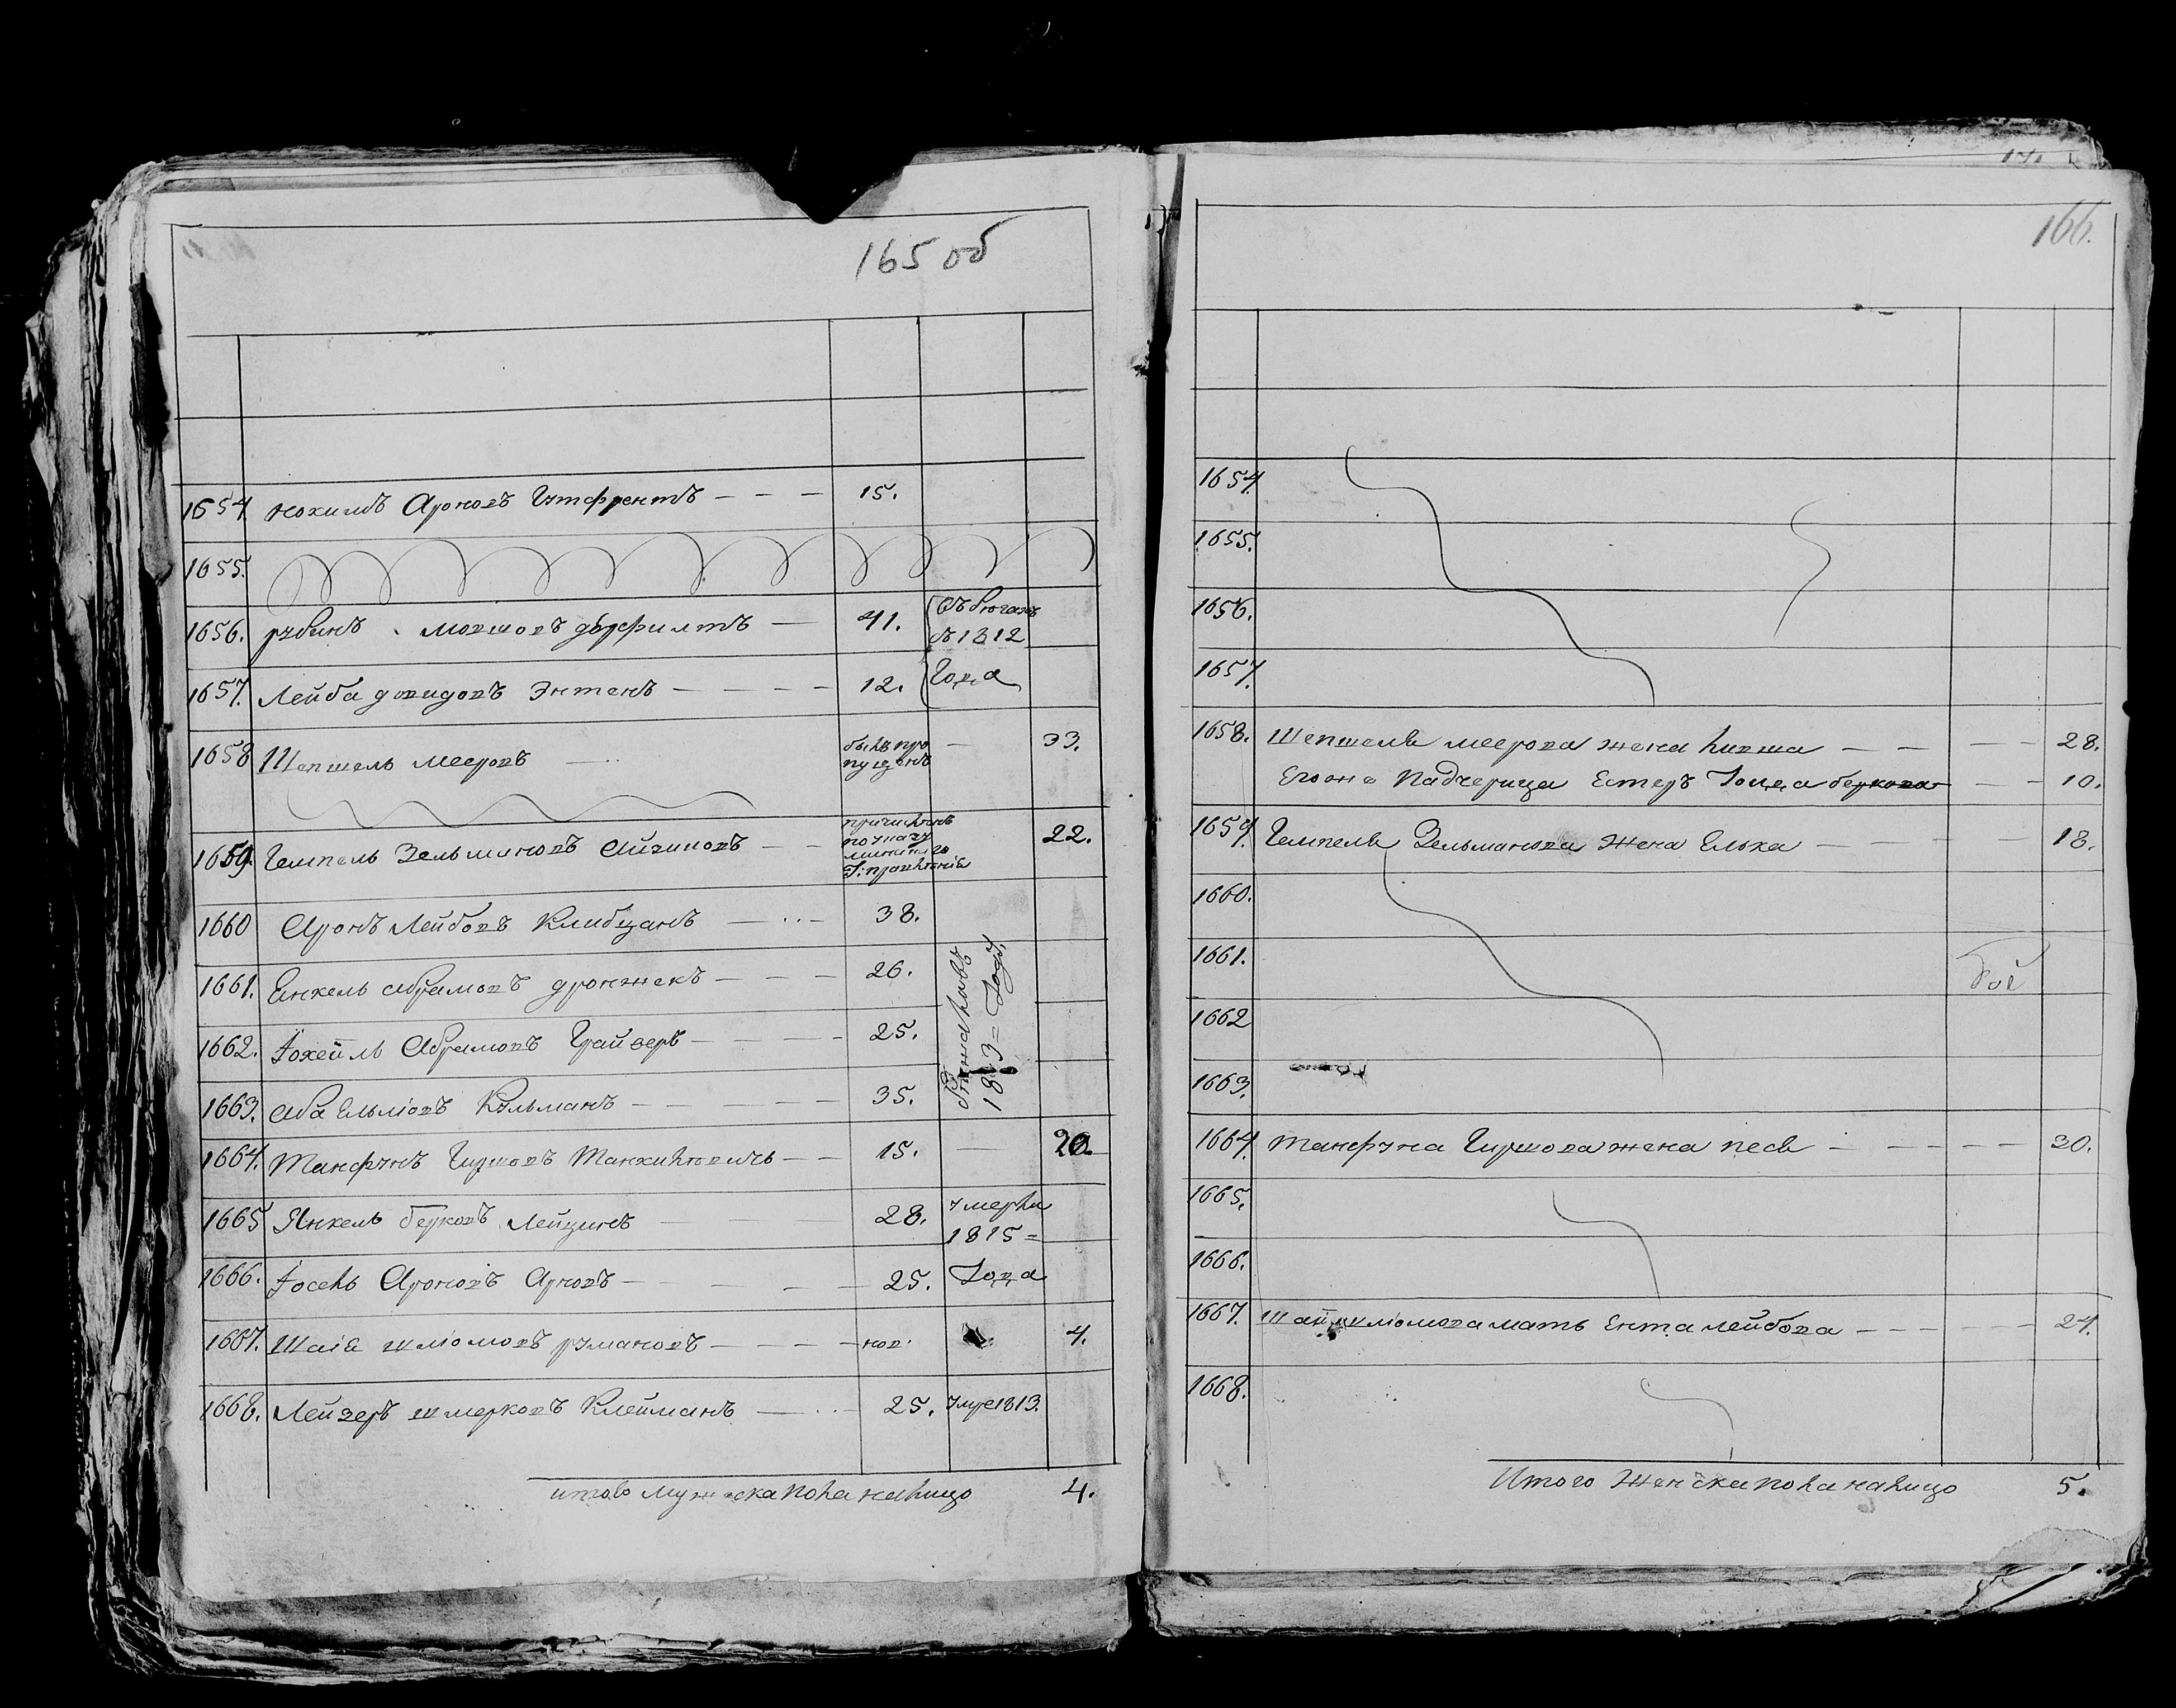 165 об
1654. нохимъ Ароновъ Гутфрентъ — — — 15.
1655.
1656. рубинъ мовшовъ — 41. Въ бегахъ
съ 1812
1657. Лейба довидовъ Энтенъ — — — — 12. Года
1658 Шепшель мееровъ — былъ про
пущенъ — 33.
1659. Гемпель Зельмановъ — — причисленъ
по указу
22.
1660 Аронъ Лейбовъ Клибцанъ — — 38.
1661. Енкель абрамовъ дронжекъ — — — 26.
1662. Іохейль Абрамовъ Грайверъ — — — — 25.
1663. аба Ельліовъ Кульманъ — — — — — 35.
1813 = Году
1664. Танфунъ Гиршовъ Танхилевичь — — 15. — 20.
1665 Янкель берковъ Лейзинъ — 28. умерли
1815 =
1666. Іосель Ароновъ Ароовъ — — — — 25. Года
1667. Шаіе шліомовъ румановъ — — — — нов. 4.
1668. Лейзеръ шмерковъ Клейманъ — — 25. Умре 1813.
итого мужеска пола налицо 4.
166.
1654.
1655.
1656.
1657.
1658. Шепшеля меерова жена ливша — — — — 28.
Его она Падчерица Естеръ беркова — — 10.
1659. Гемпеля Зельманова Жена Елька — — — — 18.
1660.
1661.
1662
1663.
1664. Танфуна Гиршова жена песя — — — — — 20.
1665.
1666.
1667. Шаи шліомова мать Ента лейбова — — — — — 24.
1668.
Итого Женска пола налицо 5.